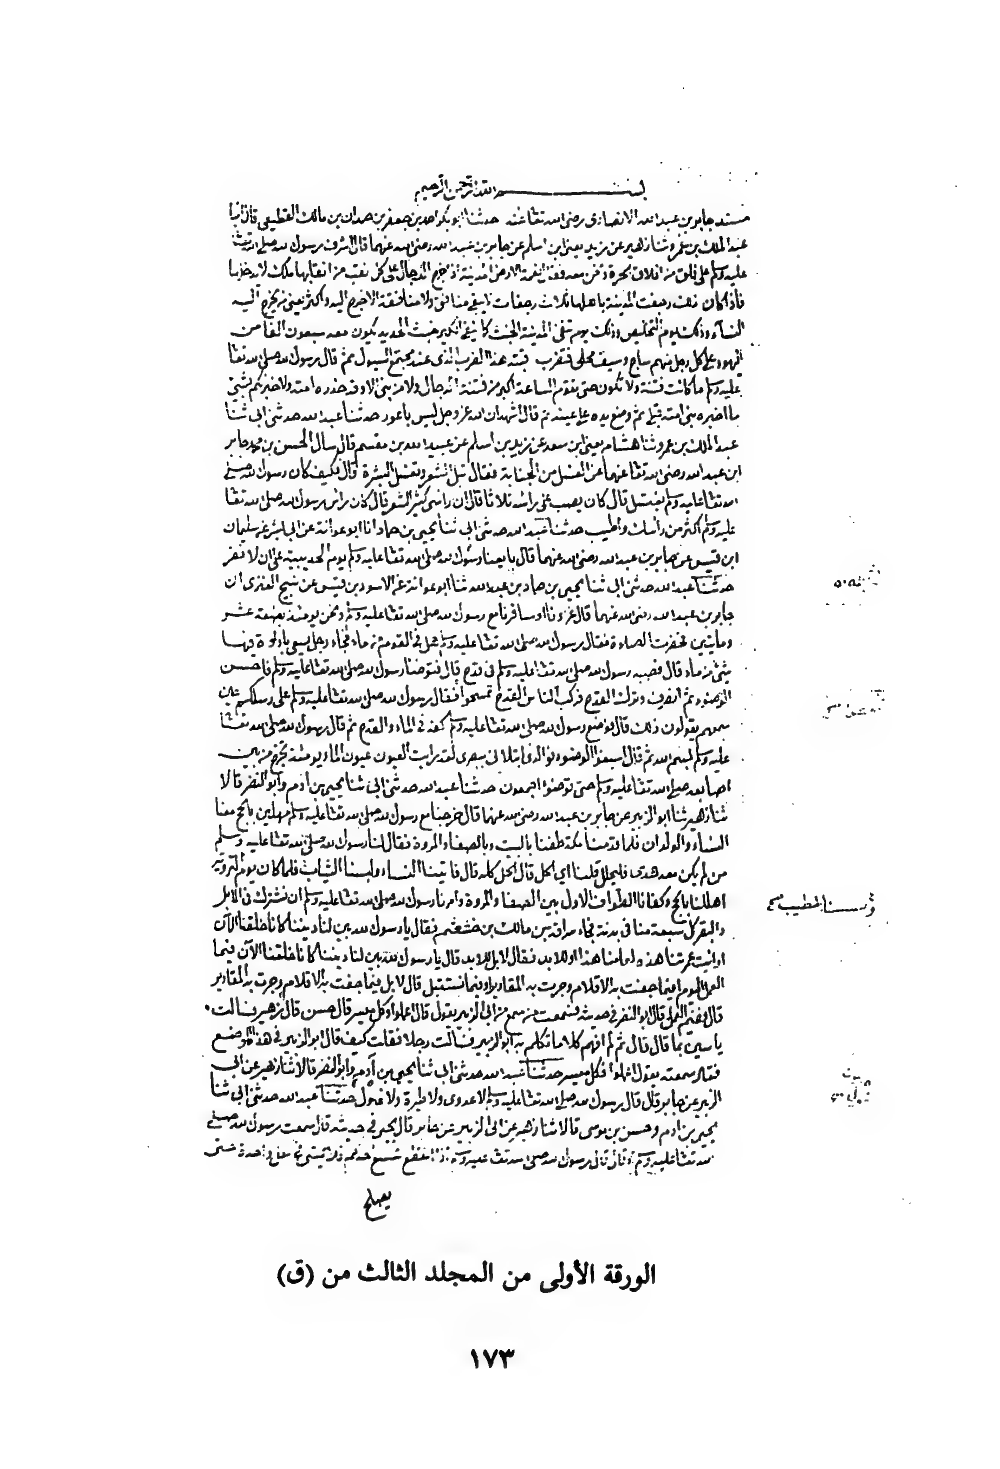 بسم الله الرحمن الرحيم
مسند جابر بن عبد الله الانصارى رضى الله تعا عنه حدثنا ابو بكر احمد بن جعفر بن حمدان بن مالك القطيعى قال
عبد الملك بن عمرو ثنا زهير عن زيد يعنى ابن اسلم عن جابر بن عبد الله رضى الله عنهما قال اشرف رسول الله صلى الله
عليه وسلم على فلق من افلاق الحرة ونحن معه فقال نعمت الارض المدينة اذا خرج الدجال على كل نقب من انقابها ملك لا يدخلها
فاذا كان رجفت المدينة باهلها ثلاث رجفات لا يبقى منافق ولا منافقة الا خرج اليه واكثر يعنى من يخرج اليه
النساء وذلك يوم التخليص وذلك يوم تنفى المدينة الخبث كما ينفى الكير خبث الحديد يكون معه سبعون الفا من
اليهود على كل رجل منهم ساج وسيف محلى فتضرب قبته هذا الضرب الذى عند مجتمع السيول ثم قال رسول الله صلى الله تعا
عليه وسلم ما كانت فتنة ولا تكون حتى تقوم الساعة اكبر من فتنة الدجال ولا من نبى الا وقد حذره امته ولاخبرنكم بشئ
ما اخبره نبى امته قبلى ثم وضع يده على عينه ثم قال اشهد ان الله عز وجل ليس باعور حدثنا عبد الله حدثنى ابى ثنا
عبد الملك بن عمرو ثنا هشام يعنى ابن سعد عن زيد بن اسلم عن عبيد الله بن مقسم قال سال الحسن بن محمد جابر
ابن عبد الله رضى الله تعا عنهما عن الغسل من الجنابة فقال تبل الشعر وتغسل البشرة قال فكيف كان رسول الله صلى
الله تعا عليه وسلم يغتسل قال كان يصب على راسه ثلاثا قال ان راسى كثير الشعر قال كان راس رسول الله صلى الله تعا
عليه وسلم اكثر من راسك واطيب حدثنا عبد الله حدثنى ابى ثنا يحيى بن حماد انا ابو عوانة عن ابى بشر عن سليمان
ابن قيس عن جابر بن عبد الله رضى الله عنهما قال بايعنا رسول الله صلى الله تعا عليه وسلم يوم الحديبية على ان لا نفر
حدثنا عبد الله حدثنى ابى ثنا يحيى بن حماد ثنا ابو عوانة عن الاسود بن قيس عن نبيح العنزى ان
جابر بن عبد الله رضى الله عنهما قال غزونا او سافرنا مع رسول الله صلى الله تعا عليه وسلم ونحن يومئذ بضعة عشر
ومايتين فحضرت الصلوة فقال رسول الله صلى الله تعا عليه وسلم هل فى القوم من ماء فجاء رجل يسعى باداوة فيها
شئ من ماء قال فصبه رسول الله صلى الله تعا عليه وسلم فى قدح قال فتوضا رسول الله صلى الله تعا عليه وسلم فاحسن
الوضوء ثم انصرف وترك القدح فركب الناس القدح تمسحوا فقال رسول الله صلى الله تعا عليه وسلم على رسلكم حين
سمعهم يقولون ذلك قال فوضع رسول الله صلى الله تعا عليه وسلم كفه فى الماء والقدح ثم قال رسول الله صلى الله تعا
عليه وسلم بسم الله ثم قال اسبغوا الوضوء فوالذى ابتلانى ببصرى لقد رايت العيون عيون الماء يومئذ تخرج من بين
اصابعه صلى الله تعا عليه وسلم حتى توضؤا اجمعون حدثنا عبد الله حدثنى ابى ثنا يحيى بن ادم وابو النضر قالا
ثنا زهير ثنا ابو الزبير عن جابر بن عبد الله رضى الله عنهما قال خرجنا مع رسول الله صلى الله تعا عليه وسلم مهلين بالحج معنا
النساء والولدان فلما قدمنا مكة طفنا بالبيت وبالصفا والمروة فقال لنا رسول الله صلى الله تعا عليه وسلم
من لم يكن معه هدى فليحلل قلنا اى الحل قال الحل كله قال فاتينا النساء ولبسنا الثياب فلما كان يوم التروية
اهللنا بالحج وكفانا الطواف الاول بين الصفا والمروة وامرنا رسول الله صلى الله تعا عليه وسلم ان نشترك فى الابل
والبقر كل سبعة منا فى بدنة فجاء سراقة بن مالك بن جعشم فقال يا رسول الله بين لنا ديننا كانا خلقنا الآن
ارايت عمرتنا هذه لعامنا هذا او للابد فقال لا بل للابد قال يا رسول الله بين لنا ديننا كانا خلقنا الآن فيما
العمل اليوم افيما جفت به الاقلام وجرت به المقادير او فيما نستقبل قال لا بل فيما جفت به الاقلام وجرت به المقادير
قال ففيم العمل قال ابو النضر فى حديثه فسمعت من سمع من ابى الزبير يقول قال اعملوا فكل ميسر قال حسن قال زهير فسالت
ياسين ما قال قال ثم لم افهم كلاما تكلم به ابو الزبير فسالت رجلا فقلت كيف قال ابو الزبير فى هذا الموضع
فقال سمعته يقول اعملوا فكل ميسر حدثنا عبد الله حدثنى ابى ثنا يحيى بن آدم وابو النضر قالا ثنا زهير عن ابى
الزبير عن جابر قال قال رسول الله صلى الله تعا عليه وسلم لا عدوى ولا طيرة ولا غول حدثنا عبد الله حدثنى ابى ثنا
يحيى بن ادم وحسن بن موسى قالا ثنا زهير عن ابى الزبير عن جابر قال يحيى فى حديثه قال سمعت رسول الله صلى
الله تعا عليه وسلم وقال قال رسول الله صلى الله تعا عليه وسلم اذا انقطع شسع احدكم فلا يمشى فى نعل واحدة حتى
يصلح
الورقة الأولى من المجلد الثالث من (ق)
١٧٣